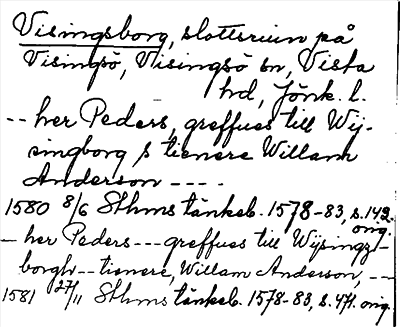 Visingsborg, slottsruin på
Visingsö, Visingsö sn, Vista
hd, Jönk. l.
-- her Peders, greffues till Wij-
singborg / tienere Willam
Anderson ----
1580 8/6 Sthms tänkeb. 1578-83, s. 149.
orig.
-- her Peders --- greffues till Wijsingz-
borgh -- tienere, Willam Anderson, ---
1581 27/11 Sthms tänkeb. 1578-83, s. 471. orig.